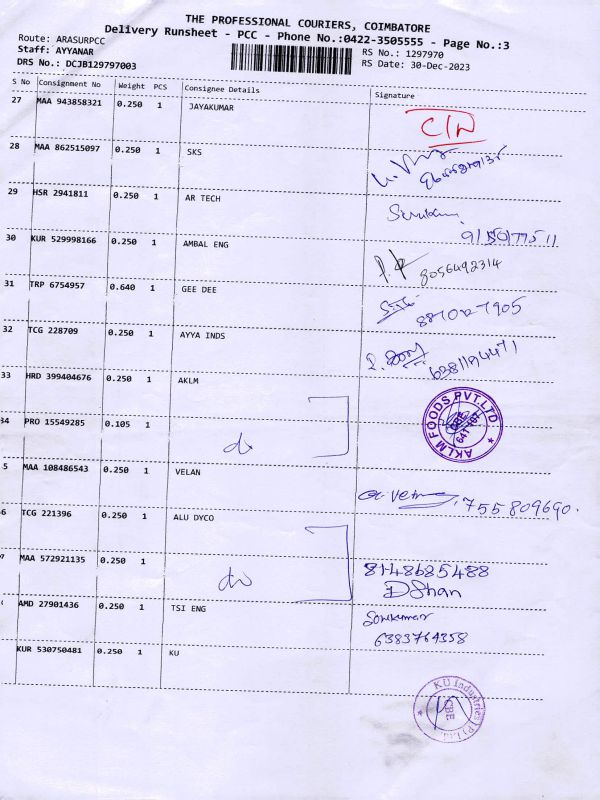 THE PROFESSIONAL COURIERS, COIMBATORE
Delivery Runsheet - PCC - Phone No.:0422-3505555 - Page No.:3
Route: ARASURPCC
RS No.: 1297970
Staff: AYYANAR
RS Date: 30-Dec-2023
DRS No.: DCJB129797003
S No Consignment No Weight PCS Consignee Details Signature
27 MAA 943858321 0.250 1 JAYAKUMAR
28 MAA 862515097 0.250 1 SKS
29 HSR 2941811 0.250 1 AR TECH
30 KUR 529998166 0.250 1 AMBAL ENG
8056492314
31 TRP 6754957 0.640 1 GEE DEE
32 TCG 228709 0.250 1 AYYA INDS
6381194471
33 HRD 399404676 0.250 1 AKLM
AKLM FOODS.PVT.LTD
CBE
34 PRO 15549285 0.105 1
do
5 MAA 108486543 0.250 1 VELAN
755809690.
6 TCG 221396 0.250 1 ALU DYCO
7 MAA 572921135 0.250 1
do
8148685488
DShan
AMD 27901436 0.250 1 TSI ENG
6383764358
KUR 530750481 0.250 1 KU
KU Industries (P) Ltd.
CBE